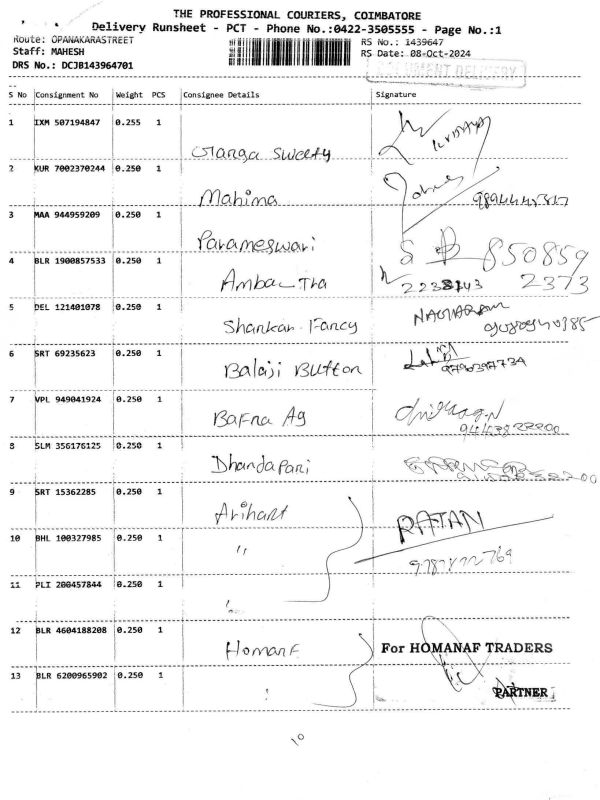 THE PROFESSIONAL COURIERS, COIMBATORE
Delivery Runsheet - PCT - Phone No.:0422-3505555 - Page No.:1
Route: OPANAKARASTREET
RS No.: 1439647
Staff: MAHESH
RS Date: 08-Oct-2024
DRS No.: DCJB143964701
DOCUMENT DELIVERY
S No Consignment No Weight PCS Consignee Details Signature
1 IXM 507194847 0.255 1
Ganga Sweety
2 KUR 7002370244 0.250 1
Mahima
3 MAA 944959209 0.250 1
Parameswari
850859
4 BLR 1900857533 0.250 1
2373
Amba
5 DEL 121401078 0.250 1
Shankar Fancy
6 SRT 69235623 0.250 1
Balaji Button
7 VPL 949041924 0.250 1
Bafna Ag
8 SLM 356176125 0.250 1
Dhandapani
9 SRT 15362285 0.250 1
Arihant
RATAN
10 BHL 100327985 0.250 1
"
11 PLI 200457844 0.250 1
"
12 BLR 4604188208 0.250 1
Homanf
For HOMANAF TRADERS
13 BLR 6200965902 0.250 1
PARTNER
10